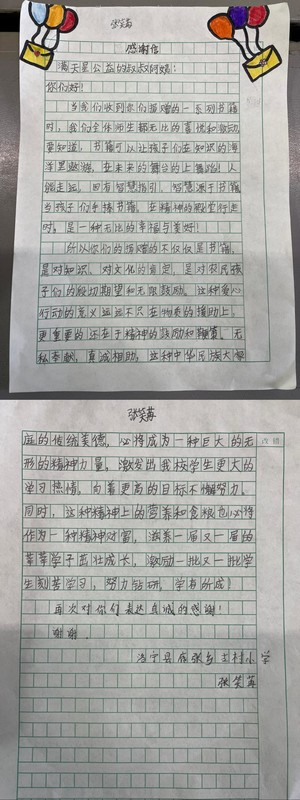 张笑苒
感谢信
满天星公益的叔叔阿姨：
你们好！
当我们收到你们捐赠的一系列书籍
时，我们全体师生都无比的喜悦和激动
要知道，书籍可以让孩子们在知识的海
洋里遨游，在未来的舞台的上舞蹈！人
能走远，因有智慧指引，智慧源于书籍
当孩子们手捧书籍，在精神的殿堂行走
时，是一种无比的幸福与美好！
所以你们的捐赠的不仅仅是书籍，
是对知识、对文化的肯定，是对农民孩
子们的殷切期望和无限鼓励。这种爱心
行动的意义远远不只在物质的援助上，
更重要的还在于精神的鼓励和鞭策。无
私奉献，真诚相助，这种中华民族大家
张笑苒
庭的传统美德，必将成为一种巨大的无
形的精神力量，激发出我校学生更大的
学习热情，向着更高的目标不懈努力。
同时，这种精神上的营养和食粮也必将
作为一种精神财富，滋养一届又一届的
莘莘学子茁壮成长，激励一批又一批学
生刻苦学习，努力钻研，学有所成！
再次对你们表达真诚的感谢！
谢谢．
洛宁县底张乡 村小学
张笑苒